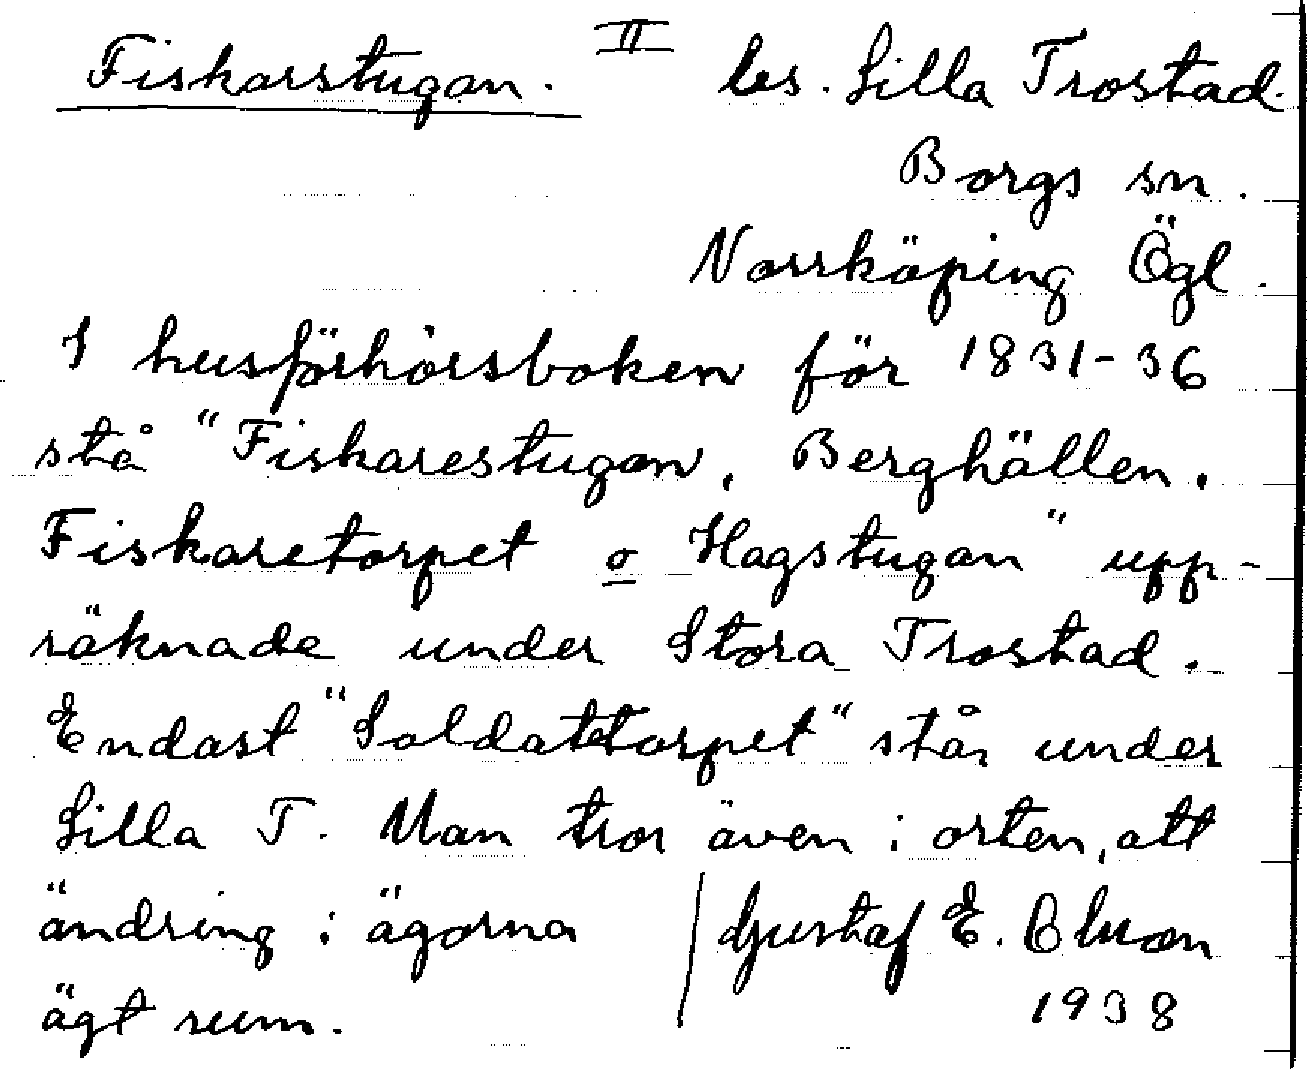 Fiskarstugan. II les. Lilla Trostad.
Borgs sn.
Norrköping Ögl.
I husförhörsboken för 1831-36
stå "Fiskarestugan, Berghällen,
Fiskaretorpet o Hagstugan" upp-
räknade under Stora Trostad.
Endast "Soldattorpet" står under
Lilla T. Man tror även i orten, att
ändring i ägorna
ägt rum.
Gustaf E.
1938